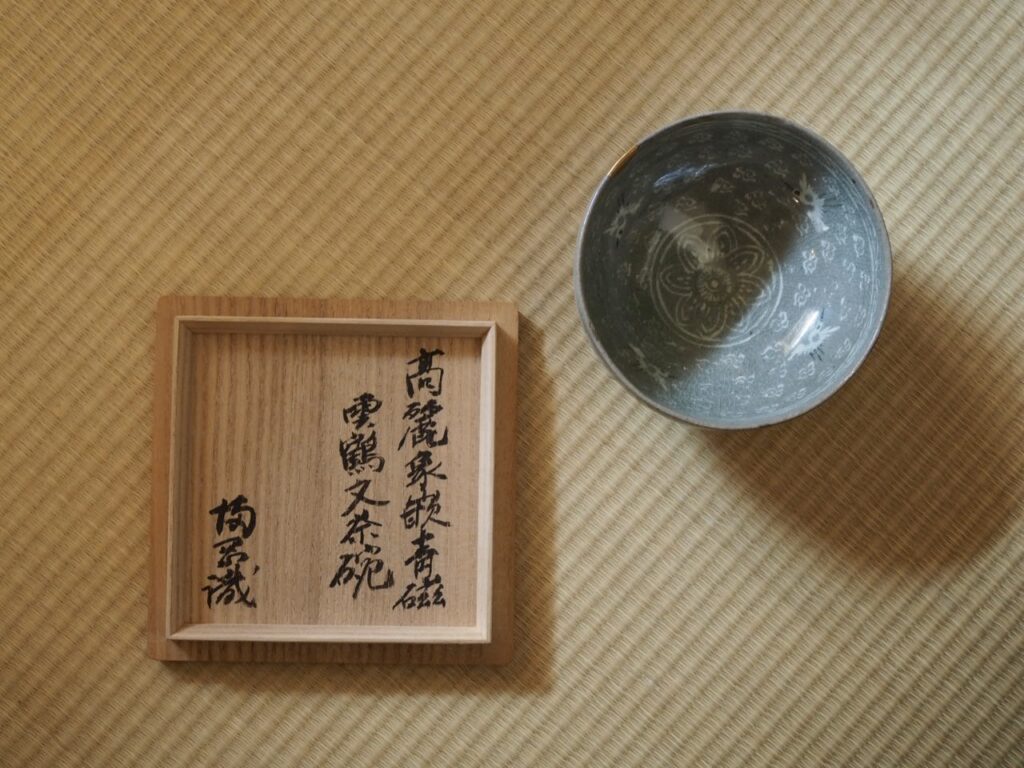 高麗象嵌青磁
雲鶴文茶碗
識